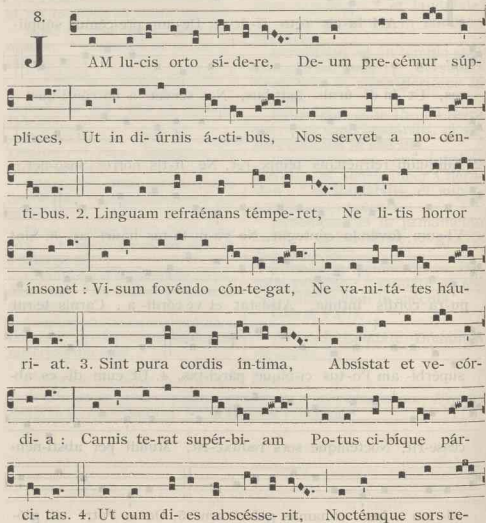 8.
JAM lu-cis orto sí-de-re, De-um pre-cémur súp-
pli-ces, Ut in di-úrnis á-cti-bus, Nos servet a no-cén-
ti-bus. 2. Linguam refraénans témpe-ret, Ne li-tis horror
ínsonet : Vi-sum fovéndo cón-te-gat, Ne va-ni-tá-tes háu-
ri-at. 3. Sint pura cordis ín-tima, Absístat et ve-cór-
di-a : Carnis te-rat supér-bi-am Po-tus ci-bíque pár-
ci-tas. 4. Ut cum di-es abscésse-rit, Noctémque sors re-